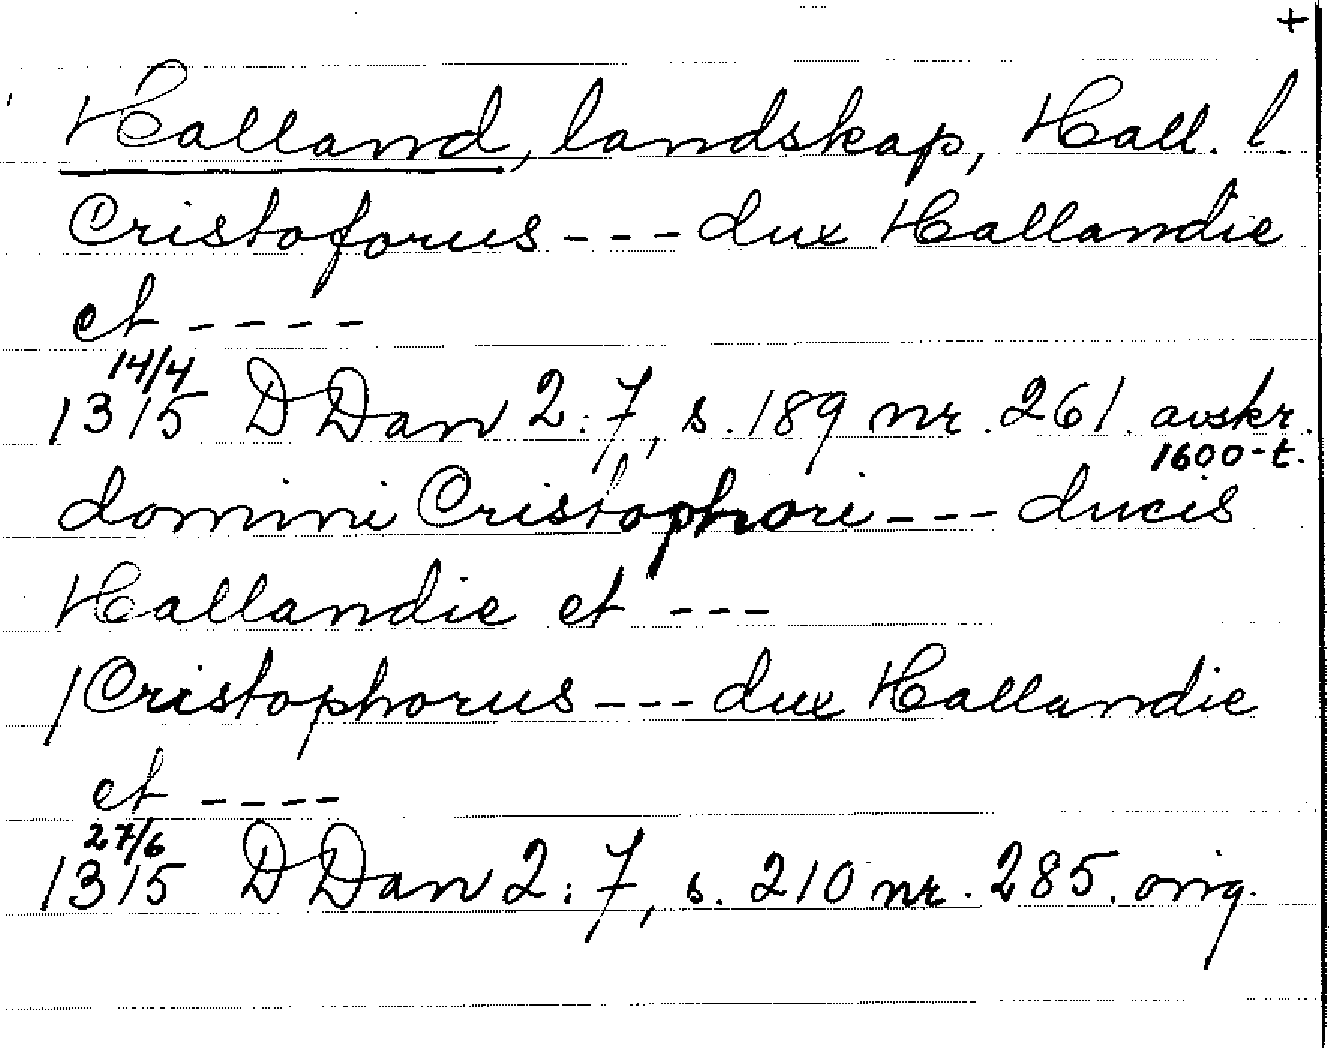 +
Halland, landskap, Hall. l
Cristoforus --- dux Hallandie
et ----
14/4
1315 D Dan 2:7, s. 189 nr. 261. avskr.
1600-t.
domini Cristophori --- ducis
Hallandie et ---
/Cristophorus --- dux Hallandie
et ----
27/6
1315 D Dan 2:7, s. 210 nr. 285. orig.